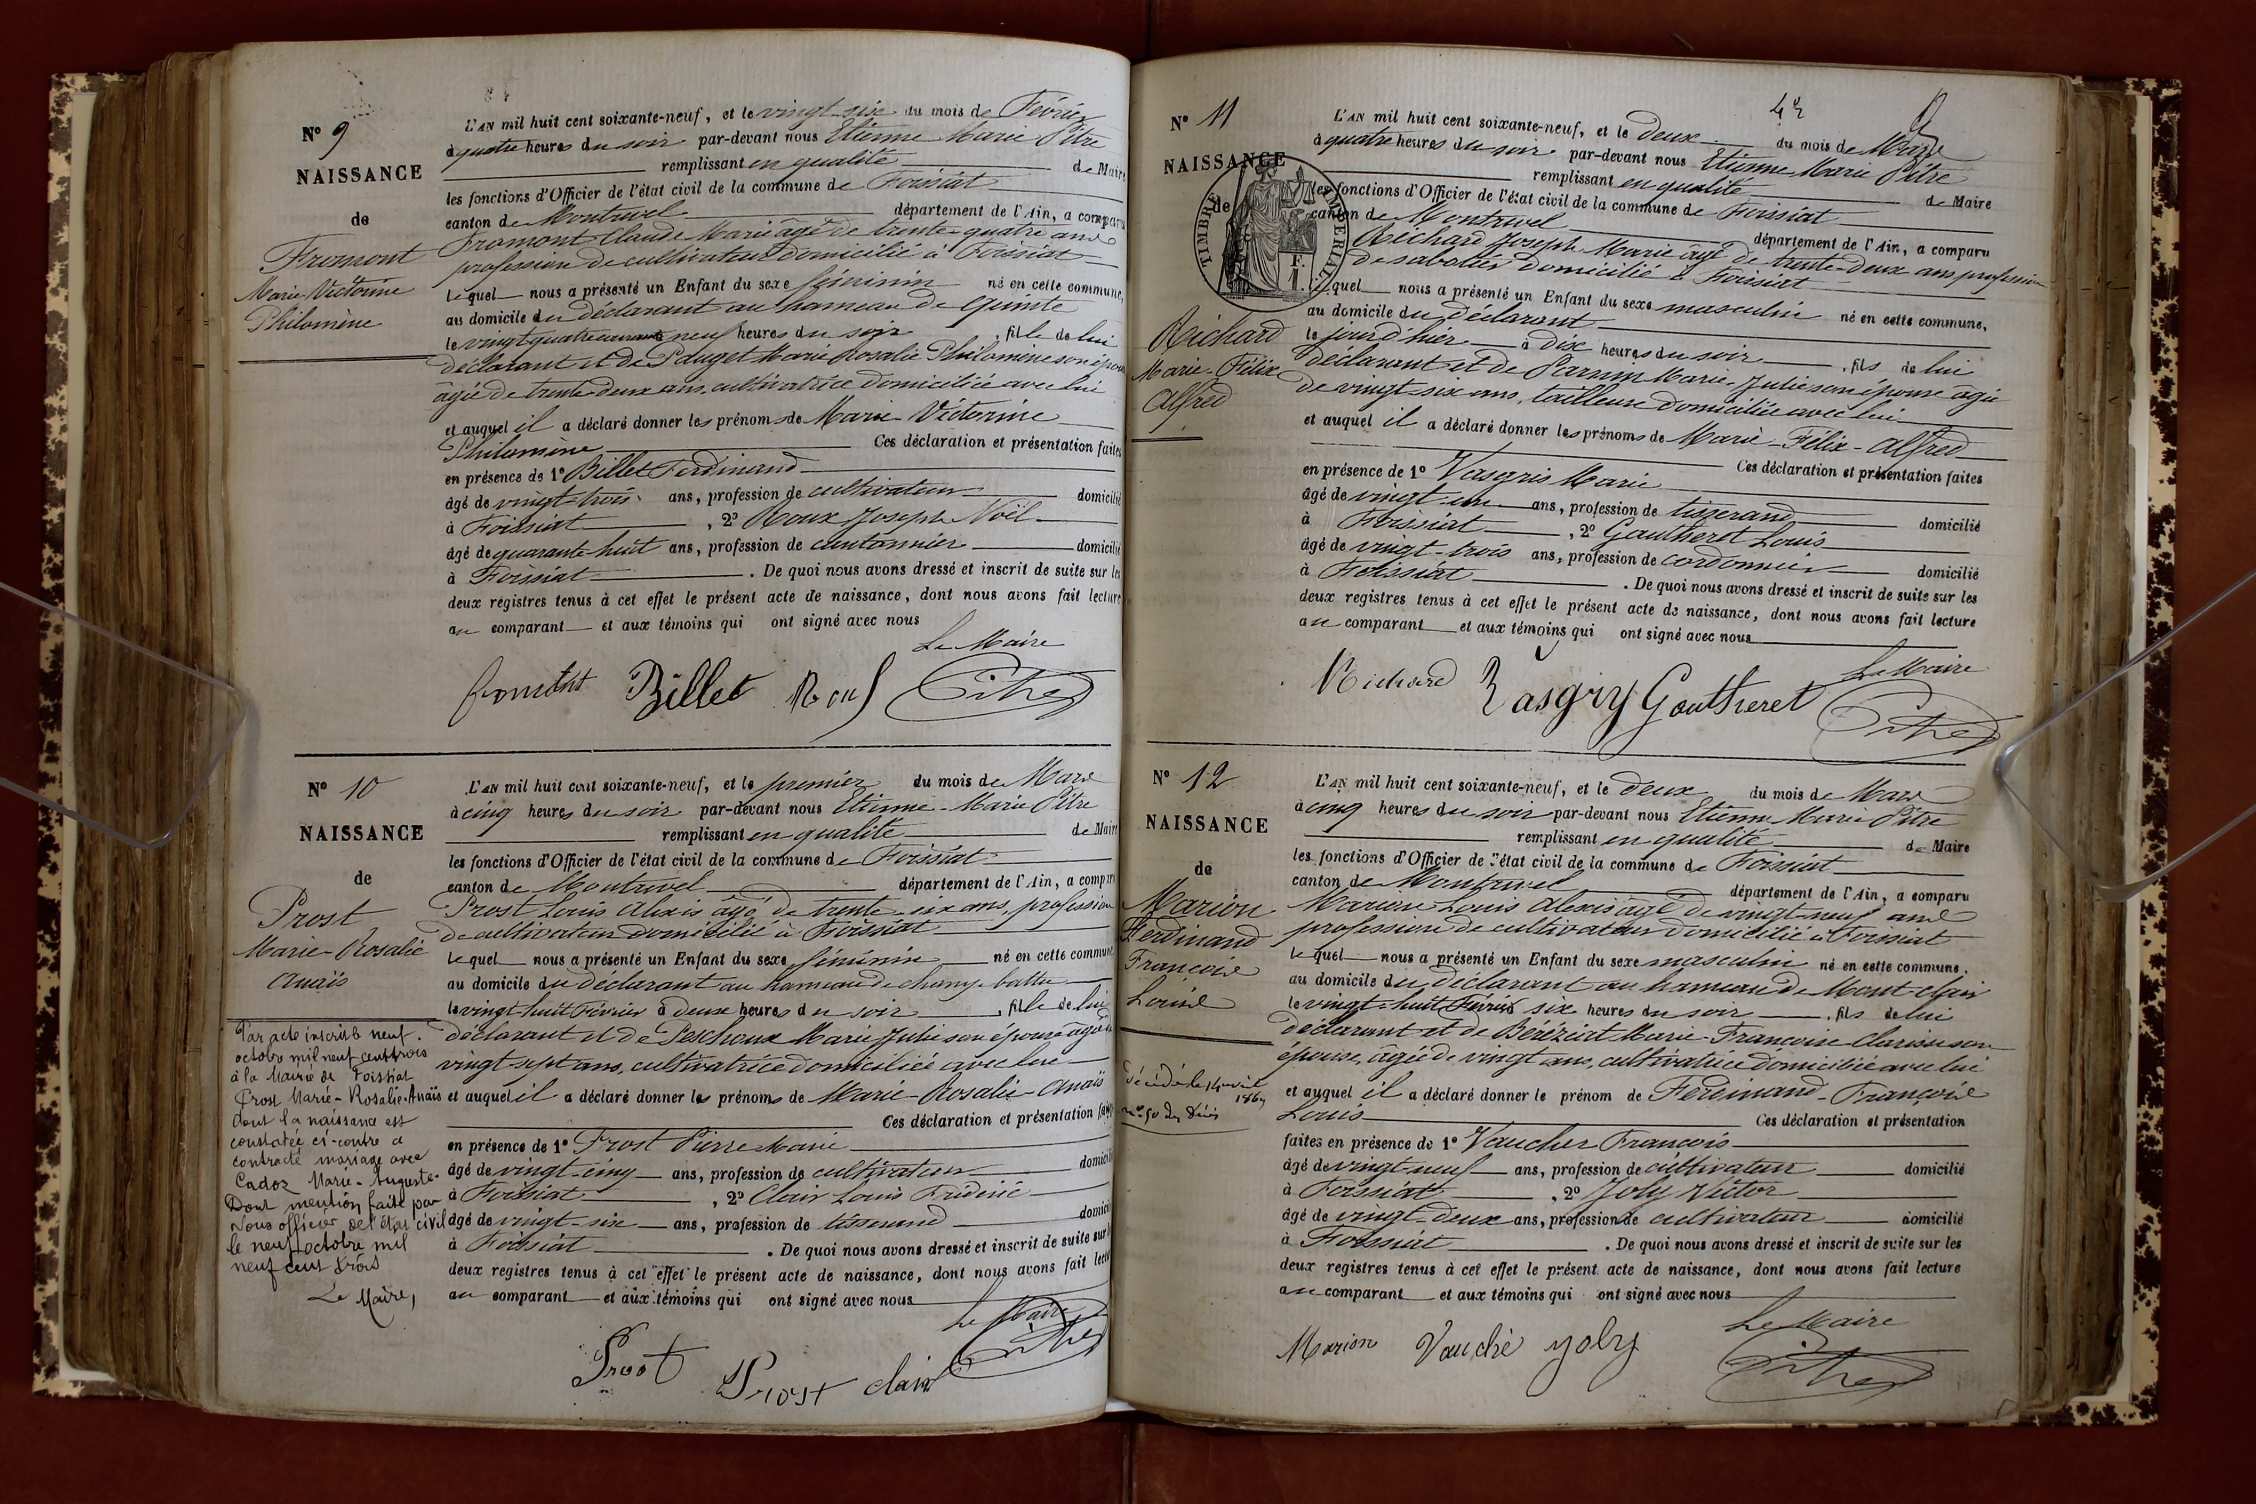 N° 9
NAISSANCE
de
Fromont
Marie-Victorine
Philomène
L'AN mil huit cent soixante-neuf, et le vingt-six du mois de Février
à quatre heures du soir par-devant nous Etienne Marie Pitre
remplissant en qualité de Maire
les fonctions d'Officier de l'état civil de la commune de Foissiat
canton de Montrevel département de l'Ain, a comparu
Fromont Claude Marie âgé de trente-quatre ans
profession de cultivateur domicilié à Foissiat
lequel nous a présenté un Enfant du sexe féminin né en cette commune,
au domicile du déclarant au hameau de
le vingt quatre courant neuf heures du soir, fille de lui
déclarant et de Pauget Marie Rosalie Philomène son épouse
âgée de trente-deux ans, cultivatrice domiciliée avec lui
et auquel il a déclaré donner les prénoms de Marie-Victorine
Philomène Ces déclaration et présentation faites
en présence de 1° Billet Ferdinand
âgé de vingt-trois ans, profession de cultivateur domicilié
à Foissiat, 2° Roux Joseph Noël
âgé de quarante huit ans, profession de cantonnier domicilié
à Foissiat. De quoi nous avons dressé et inscrit de suite sur les
deux registres tenus à cet effet le présent acte de naissance, dont nous avons fait lecture
au comparant et aux témoins qui ont signé avec nous
Le Maire
Billet Roux Pitre
N° 10
NAISSANCE
de
Prost
Marie-Rosalie
Anaïs
Par acte inscrit le neuf
octobre mil neuf cent trois
à la Mairie de Foissiat
Prost Marie-Rosalie-Anaïs
dont la naissance est
constatée ci-contre a
contracté mariage avec
Cadoz Marie-Auguste-
Dont mention faite par
Nous officier de l'état civil
le neuf octobre mil
neuf cent trois
Le Maire,
L'AN mil huit cent soixante-neuf, et le premier du mois de Mars
à cinq heures du soir par-devant nous Etienne-Marie Pitre
remplissant en qualité de Maire
les fonctions d'Officier de l'état civil de la commune de Foissiat
canton de Montrevel département de l'Ain, a comparu
Prost Louis Alexis âgé de trente-six ans, profession
de cultivateur domicilié à Foissiat
lequel nous a présenté un Enfant du sexe féminin né en cette commune
au domicile du déclarant au hameau de
le vingt huit Février à deux heures du soir, fille de lui
déclarant et de Marie Julie son épouse âgée de
vingt sept ans, cultivatrice domiciliée avec lui
et auquel il a déclaré donner les prénoms de Marie-Rosalie-Anaïs
Ces déclaration et présentation faites
en présence de 1° Prost Pierre Marie
âgé de vingt-cinq ans, profession de cultivateur domicilié
à Foissiat, 2° Clair Louis Frédéric
âgé de vingt-six ans, profession de tisserand domicilié
à Foissiat. De quoi nous avons dressé et inscrit de suite sur les
deux registres tenus à cet effet le présent acte de naissance, dont nous avons fait lecture
au comparant et aux témoins qui ont signé avec nous
Le Maire
Prost Prost clair Pitre
N° 11
NAISSANCE
de
TIMBRE IMPERIAL
1 F.
Richard
Marie-Félix
Alfred
L'AN mil huit cent soixante-neuf, et le deux du mois de Mars
à quatre heures du soir par-devant nous Etienne Marie Pitre
remplissant en qualité de Maire
les fonctions d'Officier de l'état civil de la commune de Foissiat
canton de Montrevel département de l'Ain, a comparu
Richard Joseph Marie âgé de trente-deux ans profession
de sabotier domicilié à Foissiat
lequel nous a présenté un Enfant du sexe masculin né en cette commune,
au domicile du déclarant
le jour d'hier à dix heures du soir, fils de lui
déclarant et de Marie-Julie son épouse âgée
de vingt-six ans, tailleuse domiciliée avec lui
et auquel il a déclaré donner les prénoms de Marie-Félix-Alfred
Ces déclaration et présentation faites
en présence de 1° Vasgris Marie
âgé de vingt-un ans, profession de tisserand domicilié
à Foissiat, 2° Gautheret Louis
âgé de vingt-trois ans, profession de cordonnier domicilié
à Foissiat. De quoi nous avons dressé et inscrit de suite sur les
deux registres tenus à cet effet le présent acte de naissance, dont nous avons fait lecture
au comparant et aux témoins qui ont signé avec nous
Le Maire
Richard Vasgry Gautheret Pitre
N° 12
NAISSANCE
de
Marion
Ferdinand
François
Louis
Décédé le 14 août
1869
n° 50 des Décès
L'AN mil huit cent soixante-neuf, et le deux du mois de Mars
à cinq heures du soir par-devant nous Etienne Marie Pitre
remplissant en qualité de Maire
les fonctions d'Officier de l'état civil de la commune de Foissiat
canton de Montrevel département de l'Ain, a comparu
Marion Louis Alexis âgé de vingt-neuf ans
profession de cultivateur domicilié à Foissiat
lequel nous a présenté un Enfant du sexe masculin né en cette commune.
au domicile du déclarant au hameau de Mont clair
le vingt-huit Février six heures du soir, fils de lui
déclarant et de Béréziat Marie-Françoise Clarisse son
épouse, âgée de vingt ans, cultivatrice domiciliée avec lui
et auquel il a déclaré donner le prénom de Ferdinand-François
Louis Ces déclaration et présentation
faites en présence de 1° Vaucher François
âgé de vingt neuf ans, profession de cultivateur domicilié
à Foissiat, 2° Joly Victor
âgé de vingt-deux ans, profession de cultivateur domicilié
à Foissiat. De quoi nous avons dressé et inscrit de suite sur les
deux registres tenus à cet effet le présent acte de naissance, dont nous avons fait lecture
au comparant et aux témoins qui ont signé avec nous
Le Maire
Marion Vauché joly Pitre